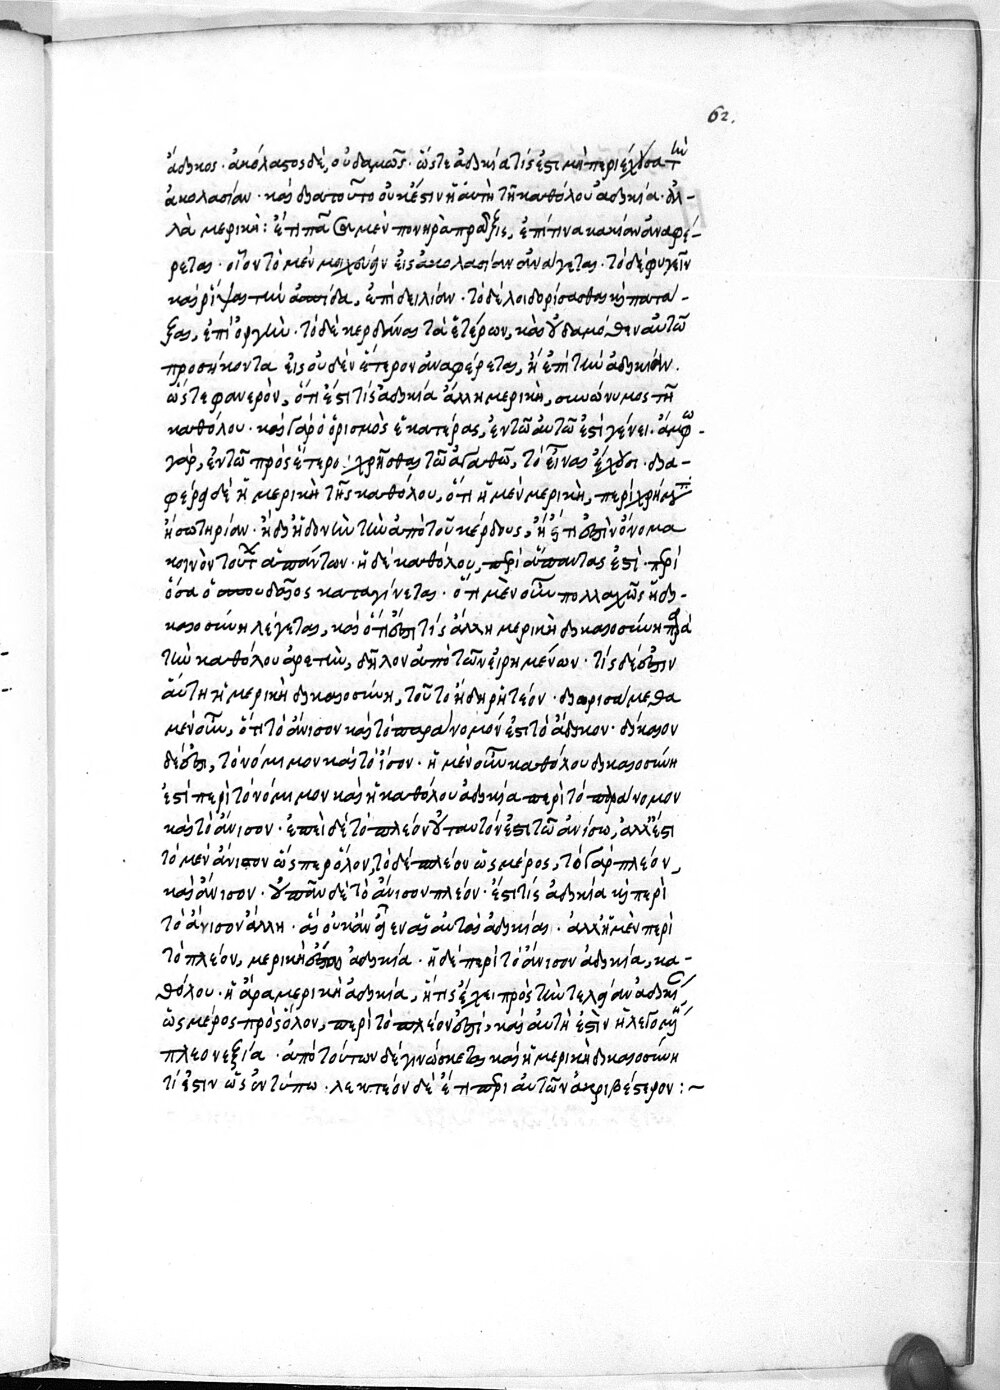 62.
ἄδικος· ἀκόλαστος δὲ, οὐδαμῶς· ὥστε ἀδικία τίς ἐστι μὴ περιέχουσα τὴν
ἀκολασίαν· καὶ διατοῦτο οὐκ ἔστιν ἡ αὐτὴ τῆ καθόλου ἀδικία· ἀλ-
λὰ μερική: ἔτι πᾶσαι μὲν πονηρὰ πράξεις, ἐπί τινα κακίαν ἀναφέ-
ρεται· οἷον τὸ μὲν μοιχεύειν εἰς ἀκολασίαν ἀνάγεται· τὸ δὲ φυγεῖν
καὶ ρίψαι τὴν ἀσπίδα, ἐπὶ δειλίαν· τὸ δὲ λοιδορίσασθαι ἢ πατά-
ξαι, ἐπὶ ὀργὴν· τὸ δὲ κερδᾶναι τὰ ἑτέρων, καὶ οὐδαμόθεν αὐτῶ
προσήκοντα εἰς οὐδὲν ἕτερον ἀναφέρεται, ἢ ἐπὶ τὴν ἀδικίαν.
ὥστε φανερὸν, ὅτι ἔστι τίς ἀδικία ἄλλη μερικὴ, συνώνυμος τῆ
καθόλου· καὶ γὰρ ὁ ὁρισμὸς ἑκατέρας, ἐν τῶ αὐτῶ ἐστὶ γένει· ἄμφω
γὰρ, ἐν τῶ πρὸς ἕτερον χρῆσθαι τῶ ἀγαθῶ, τὸ εἶναι ἔχουσι· δια-
φέρει δὲ ἡ μερικὴ τῆς καθόλου, ὅτι ἡ μὲν μερικὴ, περὶ χρήματα
ἢ σωτηρίαν· ἢ δι' ἡδονὴν τὴν ἀπὸ τοῦ κέρδους, ἢ εἴ τι ἐστὶν ὄνομα
κοινὸν τούτων ἁπάντων· ἡ δὲ καθόλου, περὶ ἅπαντας ἐστὶ· περὶ
ὅσα ὁ σπουδαῖος καταγίνεται· ὅτι μὲν οὖν πολλαχῶς ἡ δι-
καιοσύνη λέγεται, καὶ ὅτι ἐστὶ τίς ἄλλη μερικὴ δικαιοσύνη παρὰ
τὴν καθόλου ἀρετὴν, δῆλον ἀπὸ τῶν εἰρημένων· τίς δέ ἐστιν
αὕτη ἡ μερικὴ δικαιοσύνη, τοῦτο ἤδη ρητέον· διωρισάμεθα
μὲν οὖν, ὅτι τὸ ἄνισον καὶ τὸ παράνομόν ἐστι τὸ ἄδικον· δίκαιον
δέ ἐστι, τὸ νόμιμον καὶ τὸ ἴσον· ἡ μὲν οὖν καθόλου δικαιοσύνη
ἐστὶ περὶ τὸ νόμιμον καὶ ἡ καθόλου ἀδικία περὶ τὸ παράνομον
καὶ τὸ ἄνισον· ἐπεὶ δὲ τὸ πλέον οὐ ταυτόν ἐστι τῶ ἀνίσω, ἀλλ' ἔστι
τὸ μὲν ἄνισον ὥσπερ ὅλον, τὸ δὲ πλέον ὡς μέρος, τὸ γὰρ πλέον,
καὶ ἄνισον· οὐ πᾶν δὲ τὸ ἄνισον πλέον· ἔστι τίς ἀδικία ἡ περὶ
τὸ ἄνισον ἄλλη· αἳ οὐκ ἂν εἶεν αἱ αὐταὶ ἀδικίαι· ἀλλ' ἡ μὲν περὶ
τὸ πλέον, μερικὴ ἔσται ἀδικία· ἡ δὲ περὶ τὸ ἄνισον ἀδικία, κα-
θόλου· ἡ ἄρα μερικὴ ἀδικία, ἥτις ἔχει πρὸς τὴν τελείαν ἀδικίαν
ὡς μέρος πρὸς ὅλον, περὶ τὸ πλέον ἐστὶ, καὶ αὐτή ἐστιν ἡ λεγομένη
πλεονεξία· ἀπὸ τούτων δὲ γινώσκεται καὶ ἡ μερικὴ δικαιοσύνη
τί ἐστιν ὡς ἐν τύπω· λεκτέον δὲ ἔτι περὶ αὐτῶν ἀκριβέστερον:~